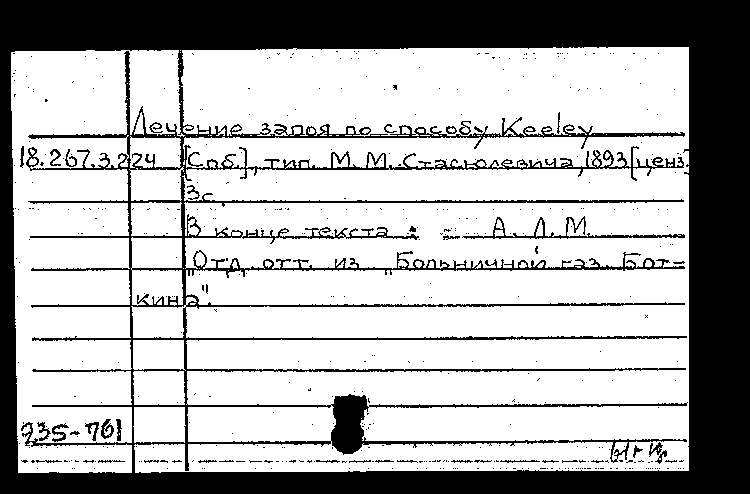 Лечение запоя по способу Keeley
18.267.3.224 [Спб.], тип. М. М. Стасюлевича, 1893 [ценз.]
3с.
В конце текста : А. Л. М.
"Отд. отт. из "Больничной газ. Бот=
кина".
935-761